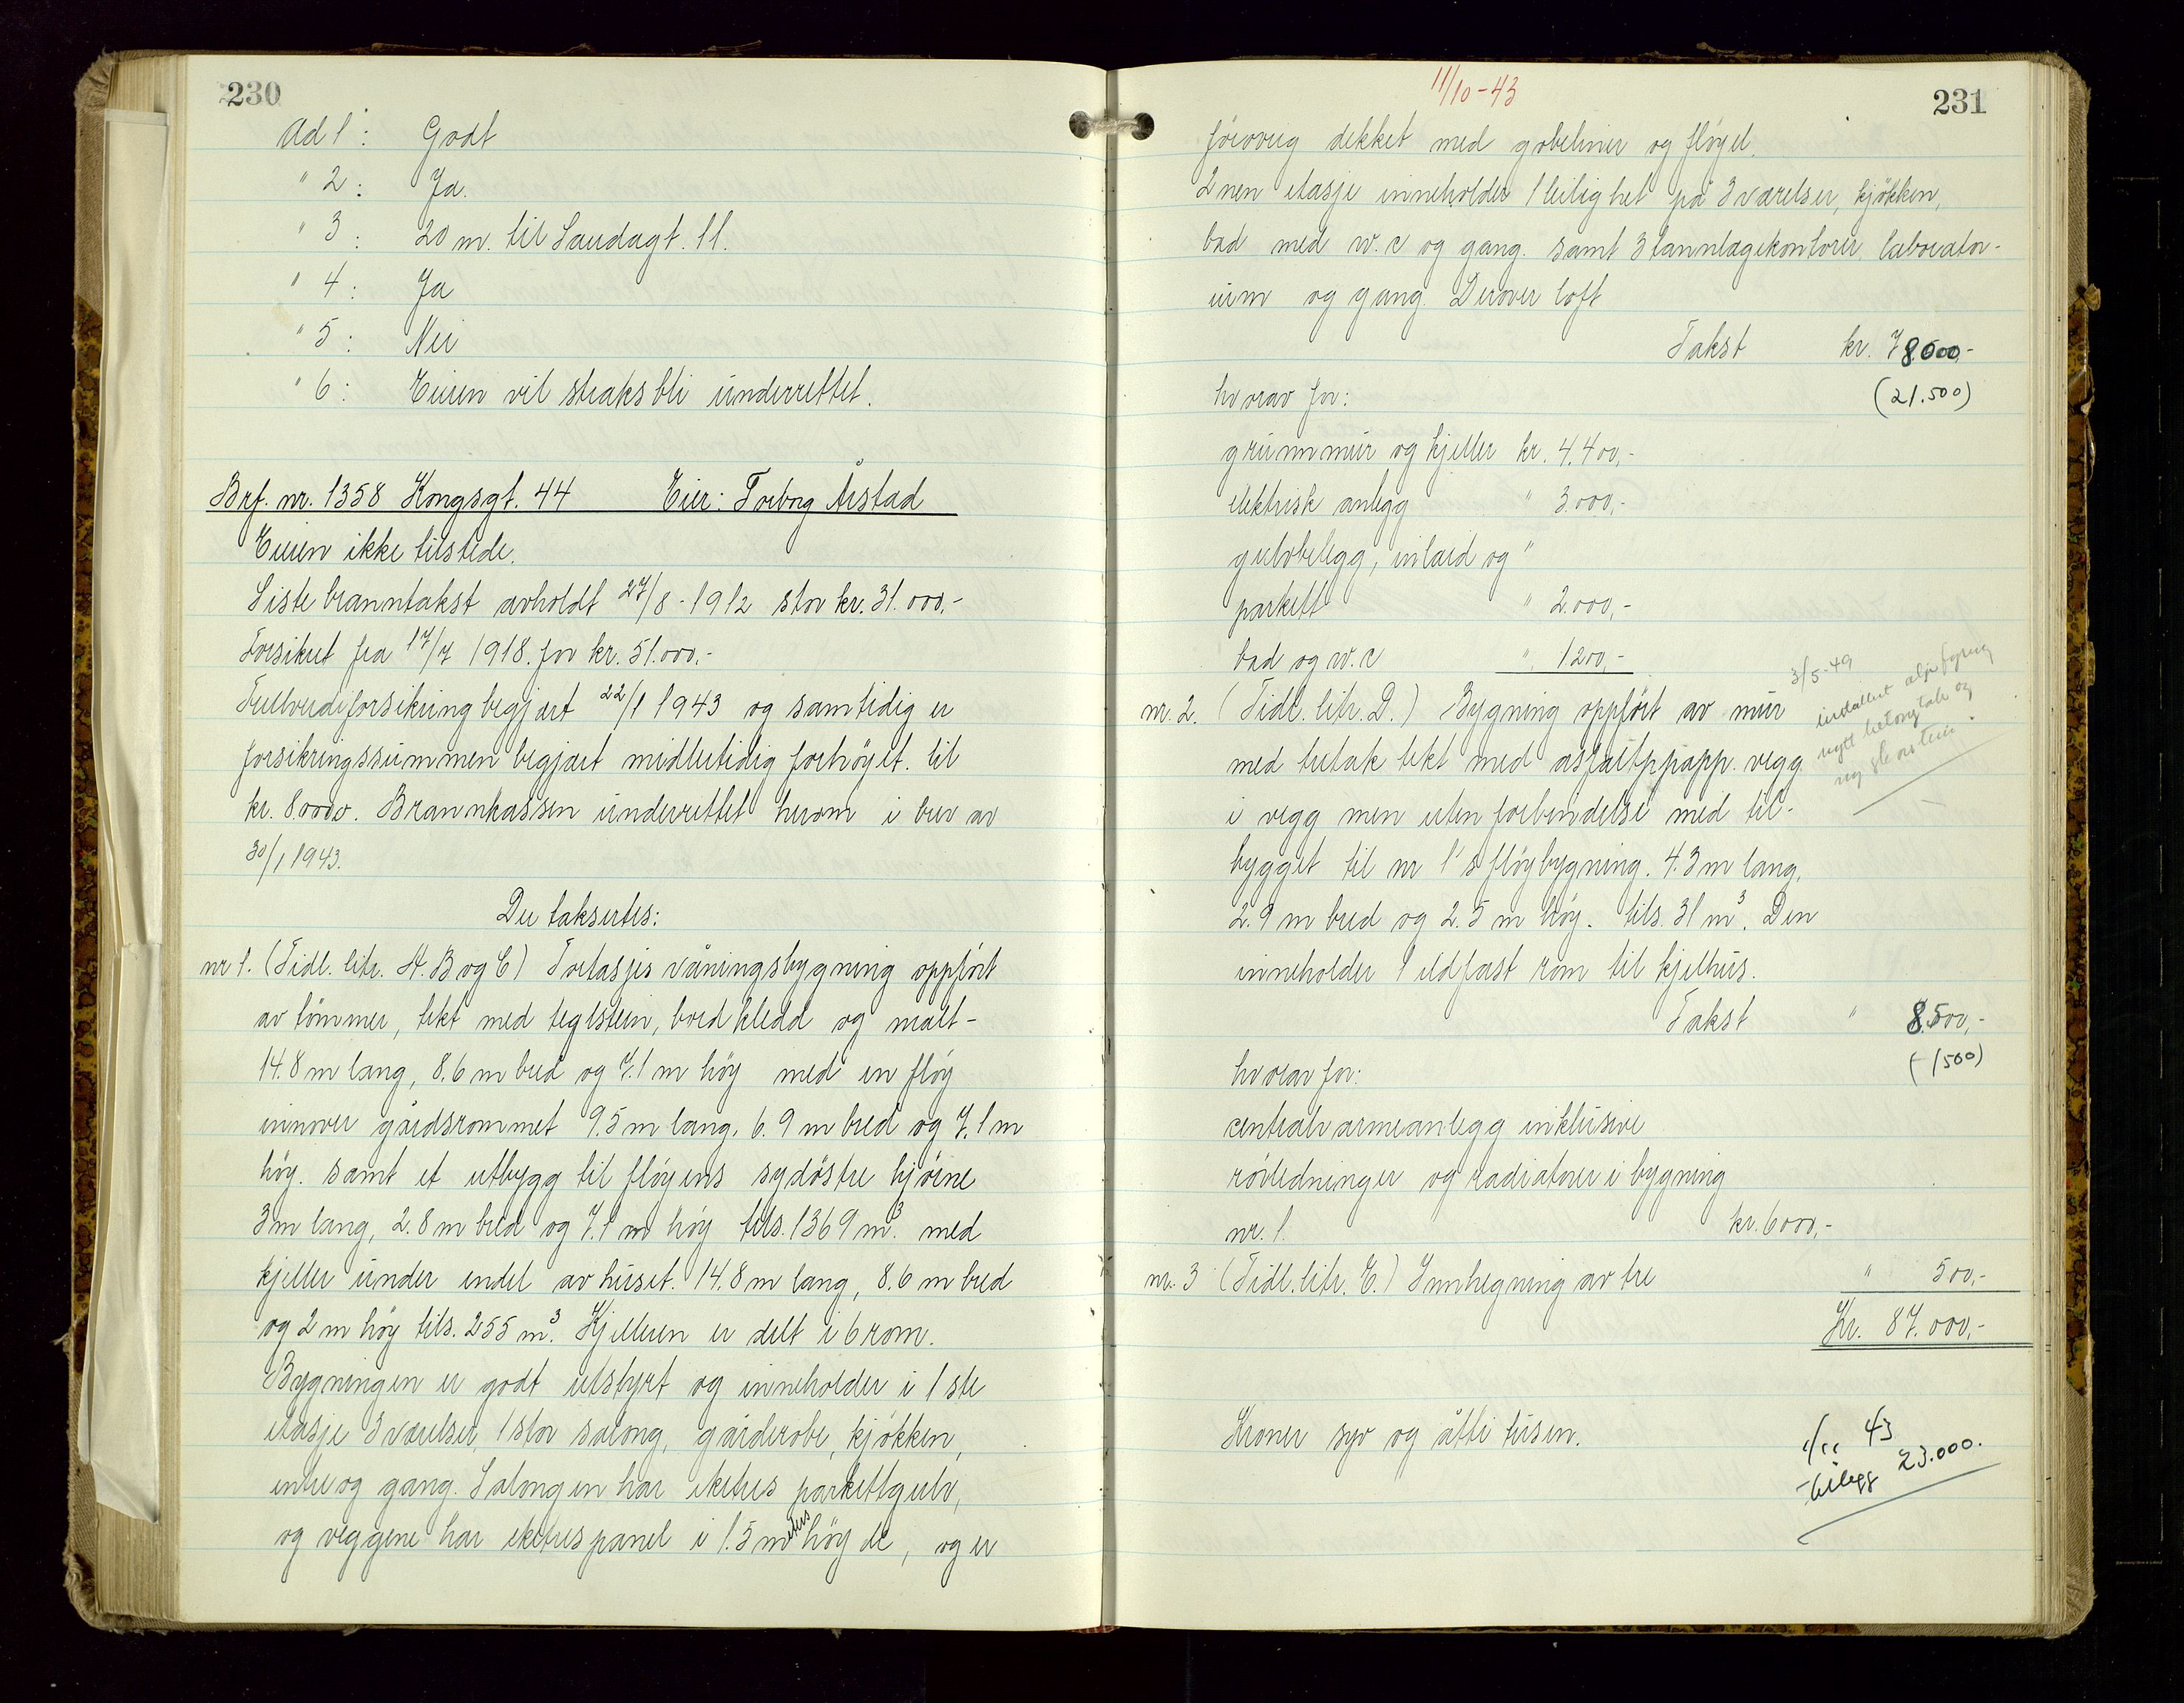 230
Ad 1: Godt
" 2: Ja.
" 3: 20 m. til Laudagt. 11.
" 4: Ja
" 5: Nei
" 6: Eieren vil straks bli underrettet.
Brf. nr. 1358 Kongsgt. 44 Eier: Torborg Årstad
Eieren ikke tilstede.
Siste branntakst avholdt 27/8-1912 stor kr. 31.000,-
Forsikret fra 17/7 1918. for kr. 51.000.-
Fullverdiforsikring begjært 22/1 1943 og samtidig er
forsikringssummen begjært midlertidig forhøyet. til
kr. 80000. Brannkassen underrettet herom i brev av
30/1 1943.
Der taksertes:
nr 1. (Tidl. litr. A. B og C) Toetasjes våningsbygning oppført
av tömmer, tekt med teglstein, bordkledd og malt-
14.8 m lang, 8.6 m bred og 7.1 m höy med en flöy
innover gårdsrommet 9.5 m lang, 6.9 m bred og 7.1 m
höy. samt et utbygg til flöyens sydöstre hjörne
3 m lang, 2.8 m bred og 7.1 m höy tils. 1369 m³. med
kjeller under endel av huset. 14.8 m lang, 8.6 m bred
og 2 m höy tils. 255 m³. Kjelleren er delt i 6 rom.
Bygningen er godt utstyrt og inneholder i 1ste
etasje 3 værelser, 1 stor salong, garderobe, kjökken,
entre og gang. Salongen har eketres parkettgulv,
og veggene har eketrespanel i 1.5 meters höyde, og er
11/10-43
231
forövrig dekket med gobeliner og flöyel.
2nen etasje inneholder 1 leilighet på 3 værelser, kjökken,
bad med w.c og gang. samt 3 tannlægekontorer, laborator-
ium og gang. Derover loft
Takst kr. 78000,-
hvorav for: (21.500)
grunnmur og kjeller kr. 4.400,-
elektrisk anlegg " 3.000,-
gulvbelegg, inlaid og "
parkett " 2.000,-
bad og w.c " 1.200,-
3/5-49
installert oljefyring
nytt betongtak og
ny skorstein.
nr. 2. (Tidl. litr. D.) Bygning oppfört av mur
med tretak tekt med asfaltppapp. vegg
i vegg men uten forbindelse med til-
bygget til nr 1's flöybygning. 4.3 m lang,
2.9 m bred og 2.5 m höy. tils. 31 m³. Den
inneholder 1 ildfast rom til kjelhus.
Takst " 8.500,-
hvorav for: (1500)
centralvarmeanlegg inklusive
rörledninger og radiatorer i bygning
nr. 1. kr. 6000,-
nr. 3 (Tidl. litr. E.) Innhegning av tre " 500,-
Kr. 87.000,-
Kroner syv og åtti tusen.
1/11 43
tillegg 23.000.